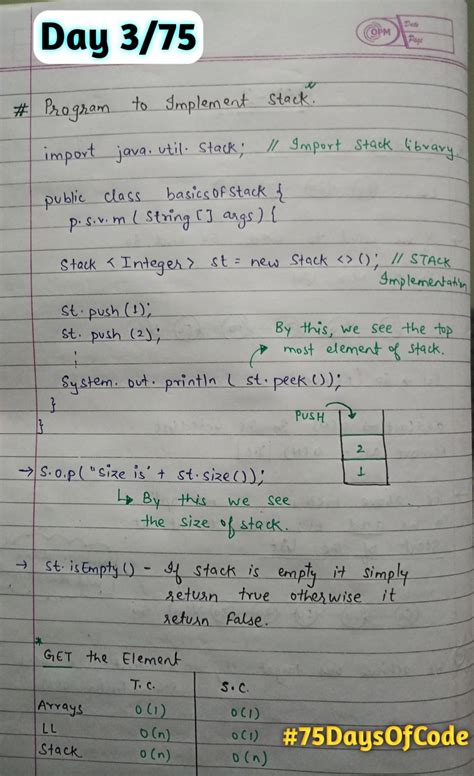 Day 3/75
OPM
Date
Page
# Program to Implement Stack.
import java.util.Stack; // Import Stack library
public class basicsofstack {
p.s.v.m (String [] args) {
Stack <Integer> st = new Stack <>(); // STACK
Implementation
st.push (1);
st.push (2);
By this, we see the top
most element of stack.
System.out.println ( st.peek());
}
}
PUSH
2
1
→ S.o.p("size is" + st.size());
↳ By this we see
the size of stack.
→ st.isEmpty() - If stack is empty it simply
return true otherwise it
return False.
* GET the Element
T.C. S.C.
Arrays O(1) O(1)
LL O(n) O(1)
Stack O(n) O(n)
#75DaysOfCode